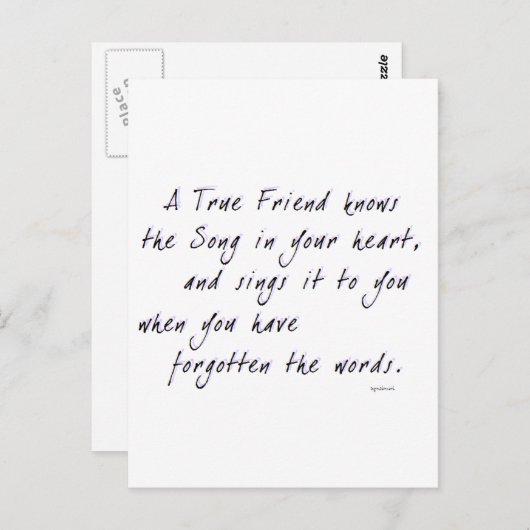 Place
zzle
A True Friend knows
the Song in your heart,
and sings it to you
when you have
forgotten the words.